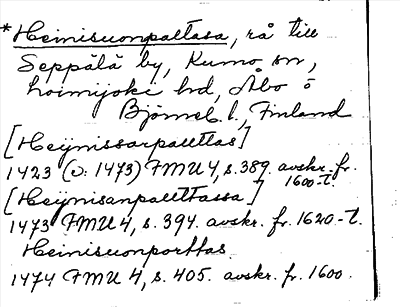 *Heinisuonpaltasa, rå till
Seppälä by, Kumo sn,
Loimijoki hd, Åbo o
Björneb. l., Finland
[Heijnissarpalttas]
1423 (v: 1473) FMU 4, s. 389. avskr. fr.
1600-t.
[Heijnisanpalttassa]
1473 FMU 4, s. 394. avskr. fr. 1620-t.
Heinisuonporttas
1474 FMU 4, s. 405. avskr. fr. 1600.